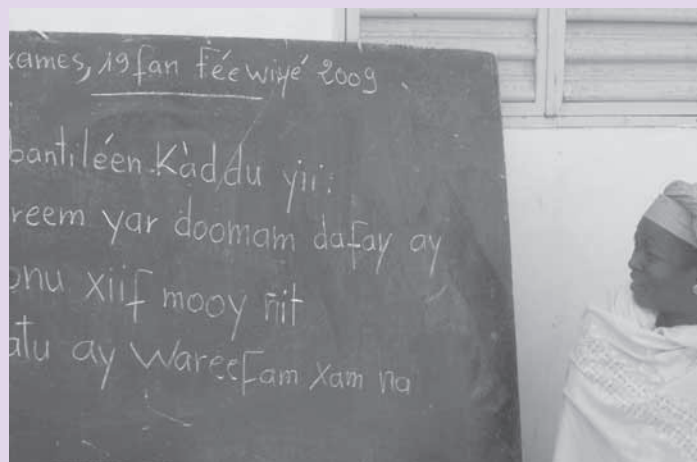 xames, 19 fan féewiyé 2009
bantiléen Kàddu yii:
reem yar doomam dafay ay
onu xiif mooy ñit
atu ay wareefam xam na